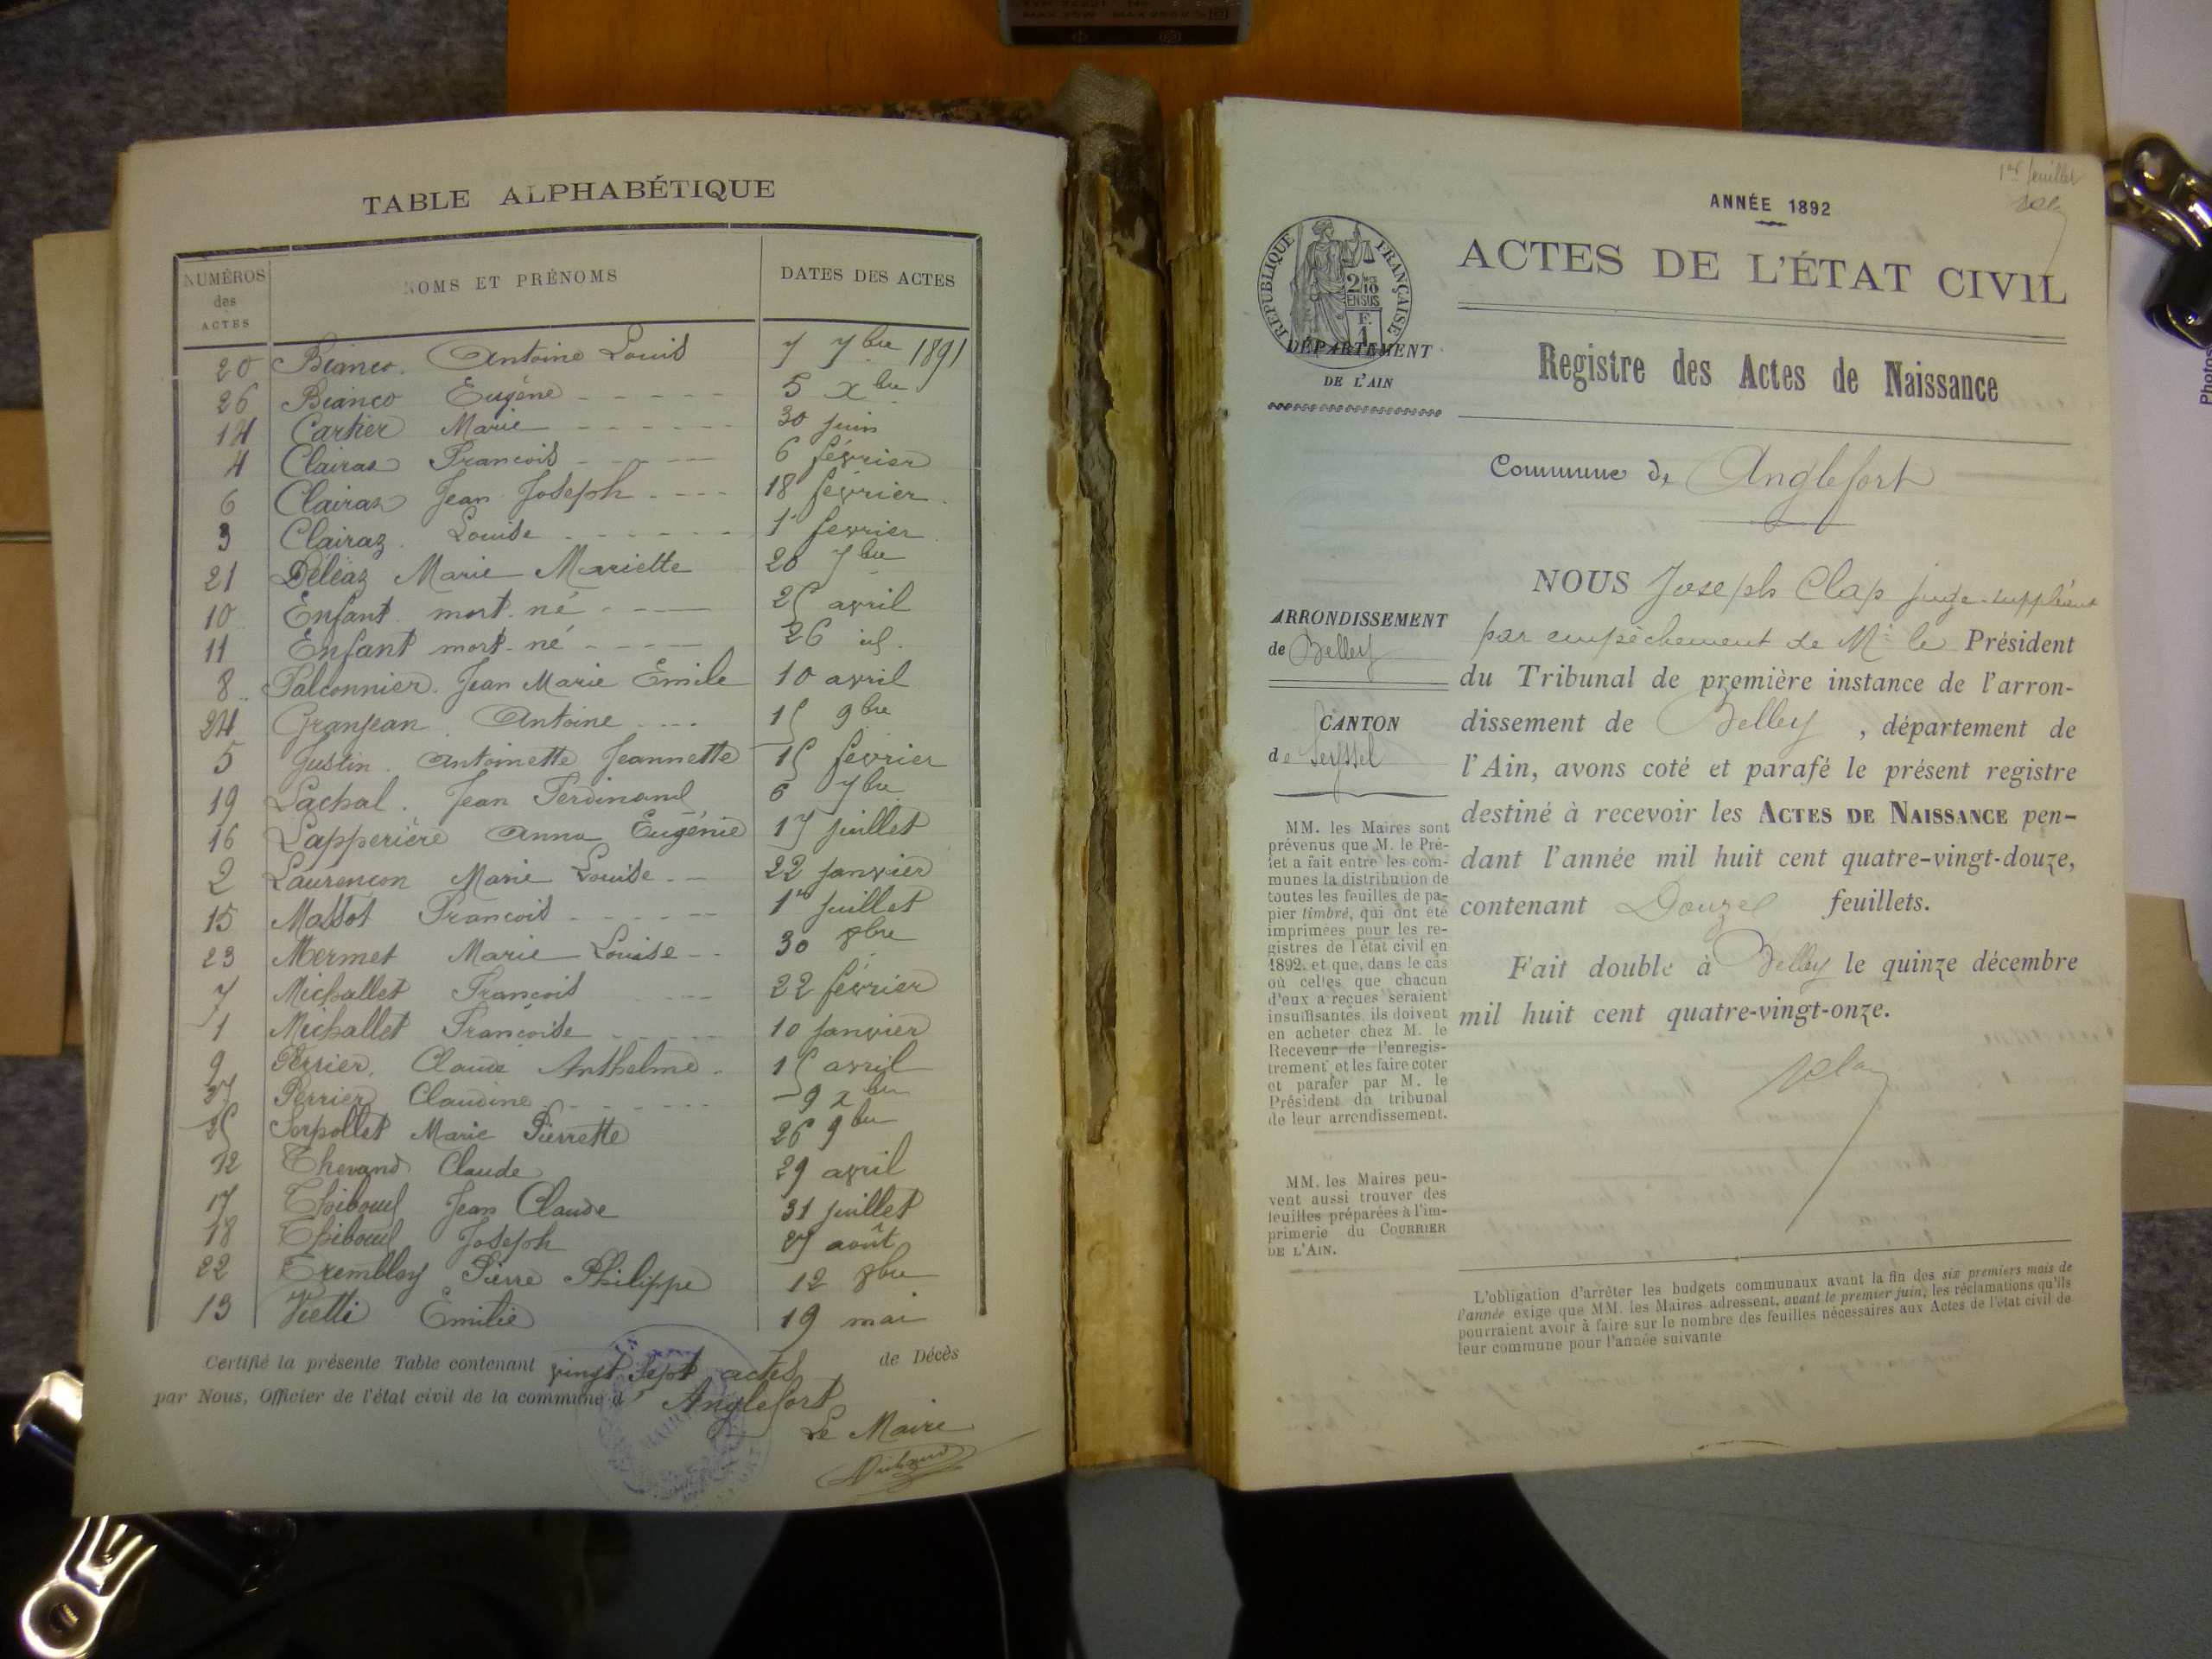 TABLE ALPHABÉTIQUE
NUMÉROS des ACTES NOMS ET PRÉNOMS DATES DES ACTES
20 Bianco. Antoine Louis 7 7bre 1891
26 Bianco Eugène 5 xbre
14 Cartier Marie 30 juin
4 Clairaz François 6 février
6 Clairaz Jean Joseph 18 février
3 Clairaz Louise 1er fevrier
21 Déléaz Marie Mariette 20 7bre
10 Enfant mort-né 25 avril
11 Enfant mort-né 26 id.
8 Falconnier. Jean Marie Emile 10 avril
24 Granjean Antoine 15 9bre
5 Justin. Antoinette Jeannette 15 février
19 Lachal. Jean Ferdinand 6 7bre
16 Lapperière Anna Eugénie 17 juillet
2 Laurençon Marie Louise 22 janvier
15 Massot François 1er juillet
23 Mermet Marie Louise 30 8bre
7 Michallet François 22 février
1 Michallet Françoise 10 janvier
9 Perrier. Claude Anthelme 15 avril
27 Perrier Claudine 9 xbre
25 Serpollet Marie Pierrette 26 9bre
12 Thevand Claude 29 avril
17 Thiboud Jean Claude 31 juillet
18 Thiboud Joseph 27 août
22 Tremblay Pierre Philippe 12 8bre
13 Vietti Emilie 19 mai
Certifié la présente Table contenant vingt sept actes de Décès
par Nous, Officier de l'état civil de la commune d'Anglefort
Le Maire
1er feuillet
ANNÉE 1892
RÉPUBLIQUE FRANÇAISE
2/10 EN SUS
F. 1
ACTES DE L'ÉTAT CIVIL
DÉPARTEMENT
DE L'AIN
Registre des Actes de Naissance
Commune d'Anglefort
ARRONDISSEMENT
de Belley
CANTON
de Seyssel
NOUS Joseph Clap juge-suppléant
par empêchement de Mr le Président
du Tribunal de première instance de l'arron-
dissement de Belley, département de
l'Ain, avons coté et parafé le présent registre
destiné à recevoir les ACTES DE NAISSANCE pen-
dant l'année mil huit cent quatre-vingt-douze,
contenant Douze feuillets.
Fait double à Belley le quinze décembre
mil huit cent quatre-vingt-onze.
MM. les Maires sont
prévenus que M. le Pré-
fet a fait entre les com-
munes la distribution de
toutes les feuilles de pa-
pier timbré, qui ont été
imprimées pour les re-
gistres de l'état civil en
1892, et que, dans le cas
où celles que chacun
d'eux a reçues seraient
insuffisantes, ils doivent
en acheter chez M. le
Receveur de l'enregis-
trement et les faire coter
et parafer par M. le
Président du tribunal
de leur arrondissement.
MM. les Maires peu-
vent aussi trouver des
feuilles préparées à l'im-
primerie du COURRIER
DE L'AIN.
L'obligation d'arrêter les budgets communaux avant la fin des six premiers mois de
l'année exige que MM. les Maires adressent, avant le premier juin, les réclamations qu'ils
pourraient avoir à faire sur le nombre des feuilles nécessaires aux Actes de l'état civil de
leur commune pour l'année suivante
Photos